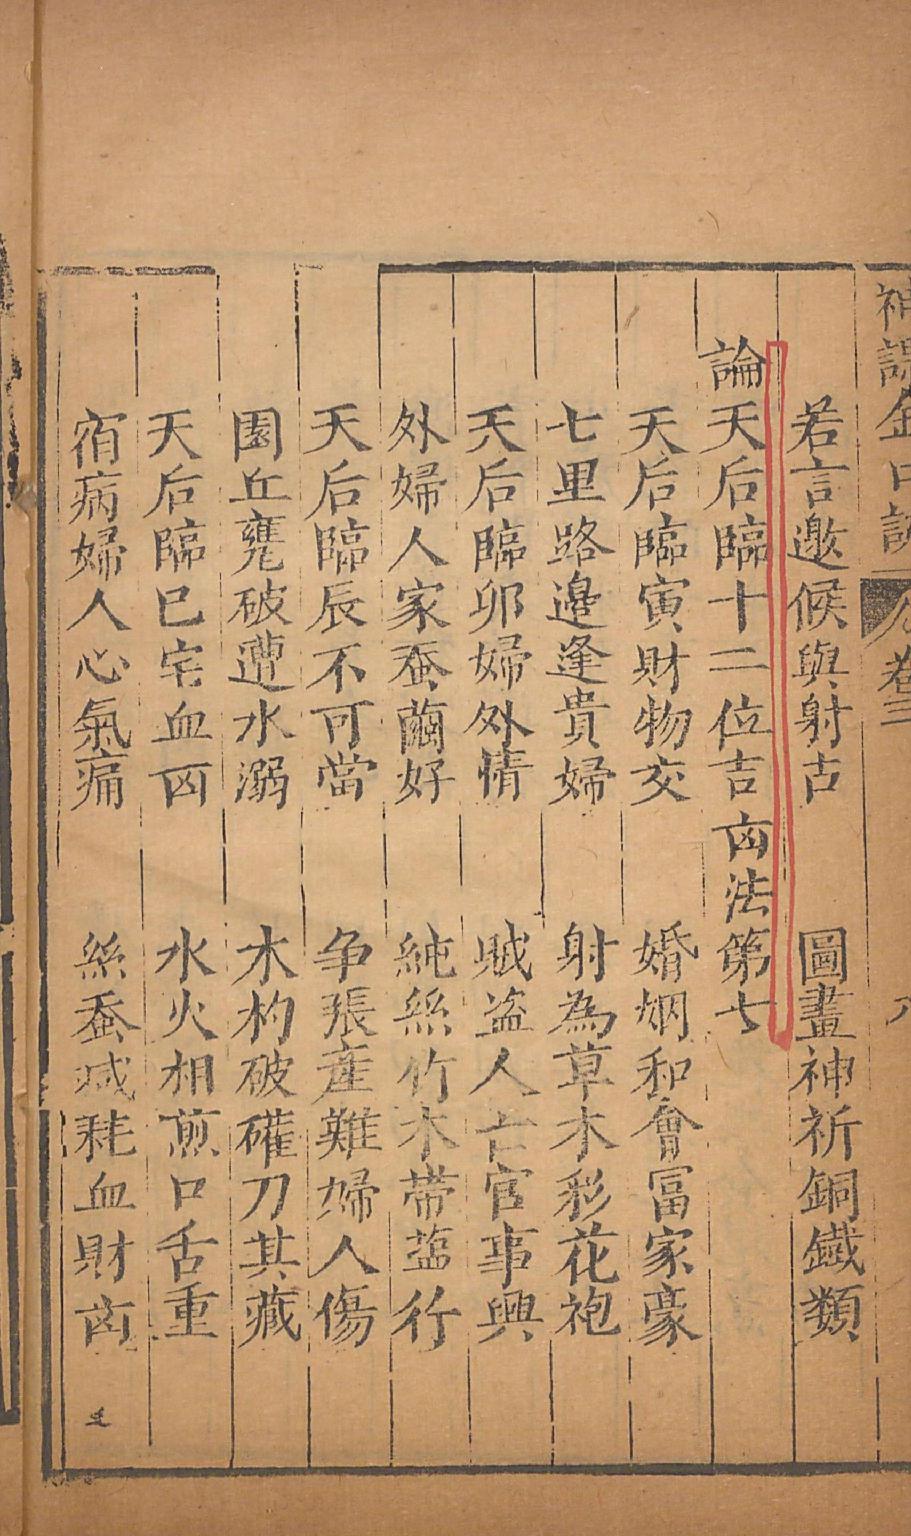 神課金口訣 卷三 八
若言邀候與射古 圖畫神祈銅鐵類
論天后臨十二位吉㐫法第七
天后臨寅財物交 婚姻和會冨家豪
七里路邊逢貴婦 射為草木彩花袍
天后臨卯婦外情 賊盗人亡官事興
外婦人家蚕繭好 純絲竹木带蓝行
天后臨辰不可當 争張產難婦人傷
園丘甕破遭水溺 木杓破礶刀其藏
天后臨巳宅血㐫 水火相煎口舌重
宿病婦人心氣痛 絲蚕减耗血財㐫